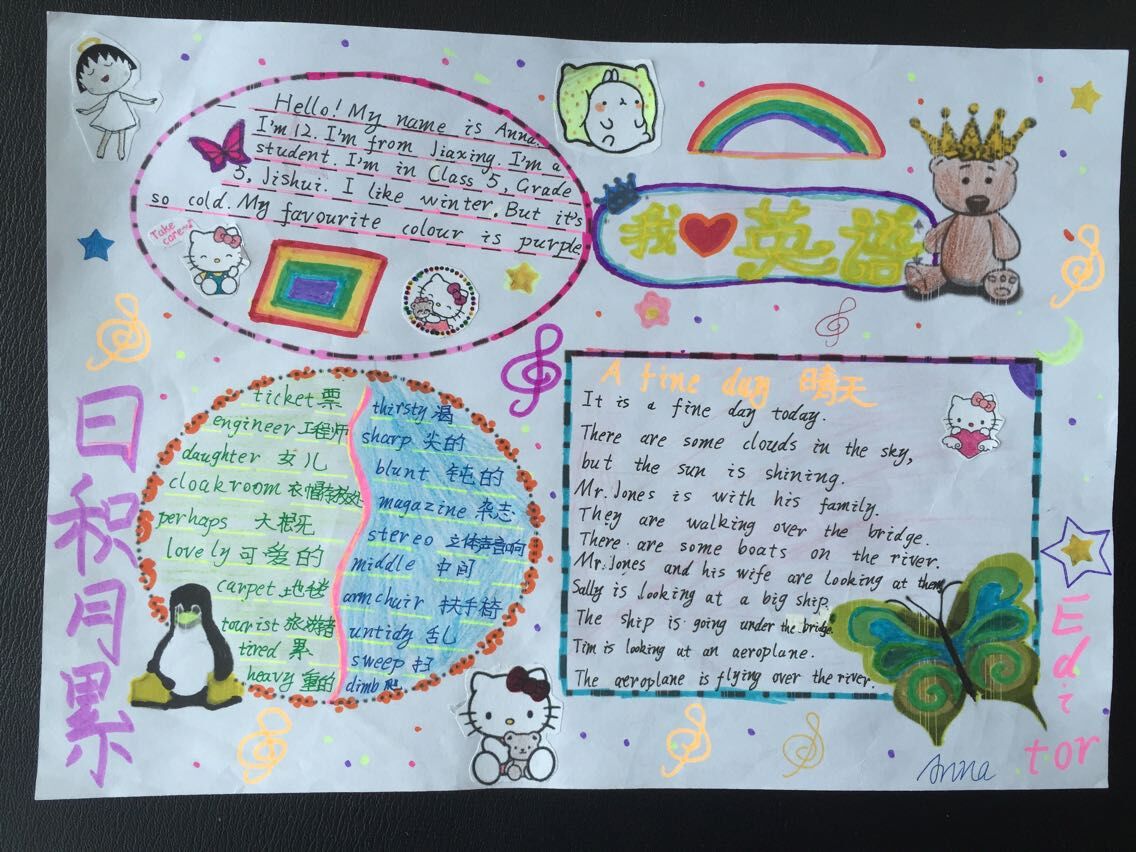 Hello! My name is Anna.
I'm 12. I'm from Jiaxing. I'm a
student. I'm in Class 5, Grade
5, Jishui. I like winter. But it's
so cold. My favourite colour is purple
Take care~
我 英语
日积月累
ticket 票
engineer 工程师
daughter 女儿
cloakroom 衣帽存放处
perhaps
lovely 可爱的
carpet 地毯
tourist 旅游者
tired 累
heavy 重的
thirsty 渴
sharp 尖的
blunt 钝的
magazine 杂志
stereo 立体声音响
middle 中间
armchair 扶手椅
untidy 乱
sweep 扫
climb 爬
A fine day 晴天
It is a fine day today.
There are some clouds in the sky,
but the sun is shining.
Mr. Jones is with his family.
They are walking over the bridge.
There are some boats on the river.
Mr. Jones and his wife are looking at them.
Sally is looking at a big ship.
The ship is going under the bridge.
Tim is looking at an aeroplane.
The aeroplane is flying over the river.
Editor
Anna